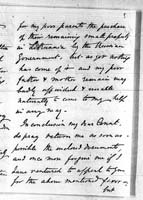 for my poor parents the purchase
of their remaining small property
in Lithuania by the Russian
Government. but as yet nothing
has come of it and my poor
father & mother remain very
badly off indeed & would
naturally come to my help
in any way.
In conclusion my dear Count.
be pray return me as soon as
possible the enclosed documents
and once more forgive me if I
have ventured to appeal to you
for the above mentioned favor
but